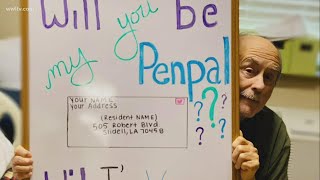 wwltv.com
Will you be
my Penpal
? ? ? ?
Your NAME
Your Address
(Resident NAME)
505 Robert Blvd
Slidell, LA 70458